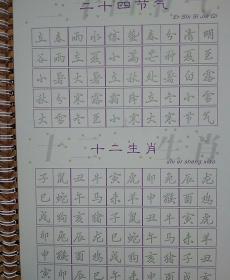 二十四节气
Er Shi Si Jie Qi
立春雨水惊蛰春分清明
谷雨立夏小满芒种夏至
小暑大暑立秋处暑白露
秋分寒露霜降立冬小雪
大雪冬至小寒大寒节气
十二生肖
shi er sheng xiao
子鼠丑牛寅虎卯兔辰龙
巳蛇午马未羊申猴酉鸡
戌狗亥猪子鼠丑牛寅虎
卯兔辰龙巳蛇午马未羊
申猴酉鸡戌狗亥猪子鼠
丑牛寅虎卯兔辰龙巳蛇